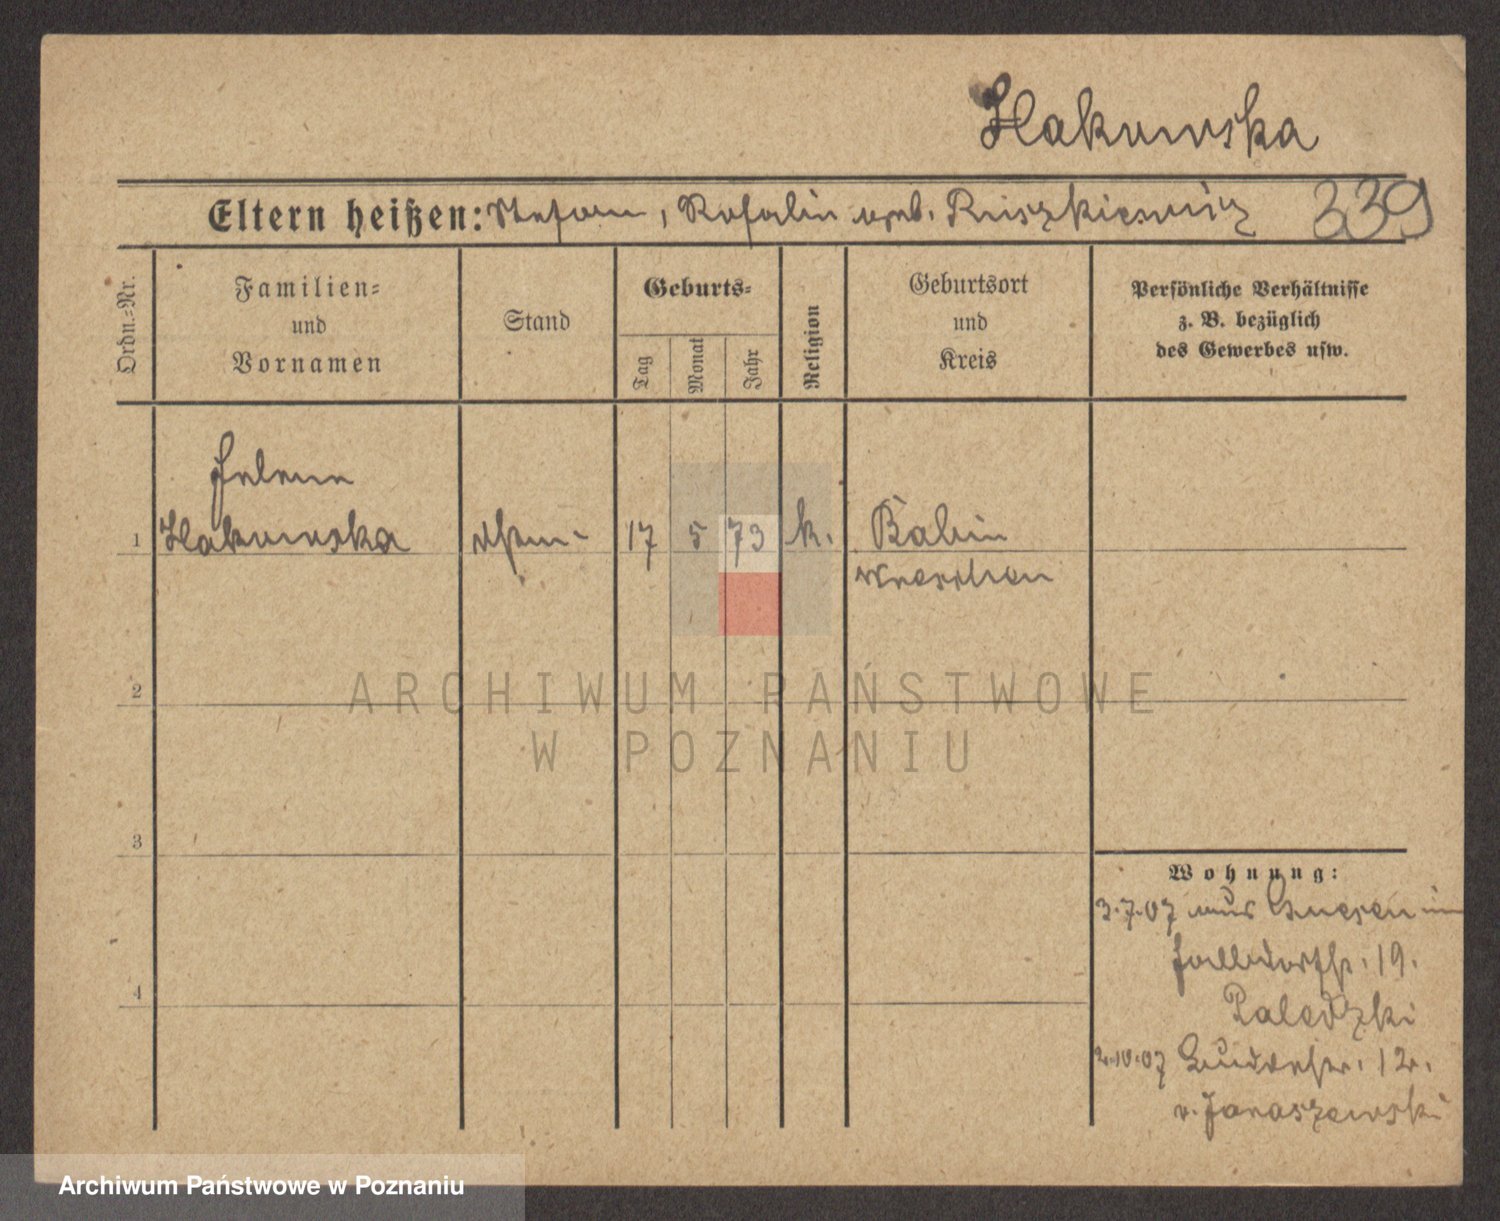 Hakowska
Eltern heißen: Stefan, Rosalie geb. Ruszkiewicz 339
Ordn.-Nr.
Familien-
und
Vornamen
Stand
Geburts-
Tag
Monat
Jahr
Religion
Geburtsort
und
Kreis
Persönliche Verhältnisse
z. B. bezüglich
des Gewerbes usw.
Helene
1 Hakowska 17 5 73 k. Babin
Wreschen
2
3
4
Wohnung:
3.7.07 aus Gnesen
19.
Paledzki
2.10.07 12.
v. Jaraszewski
ARCHIWUM PAŃSTWOWE
W POZNANIU
Archiwum Państwowe w Poznaniu